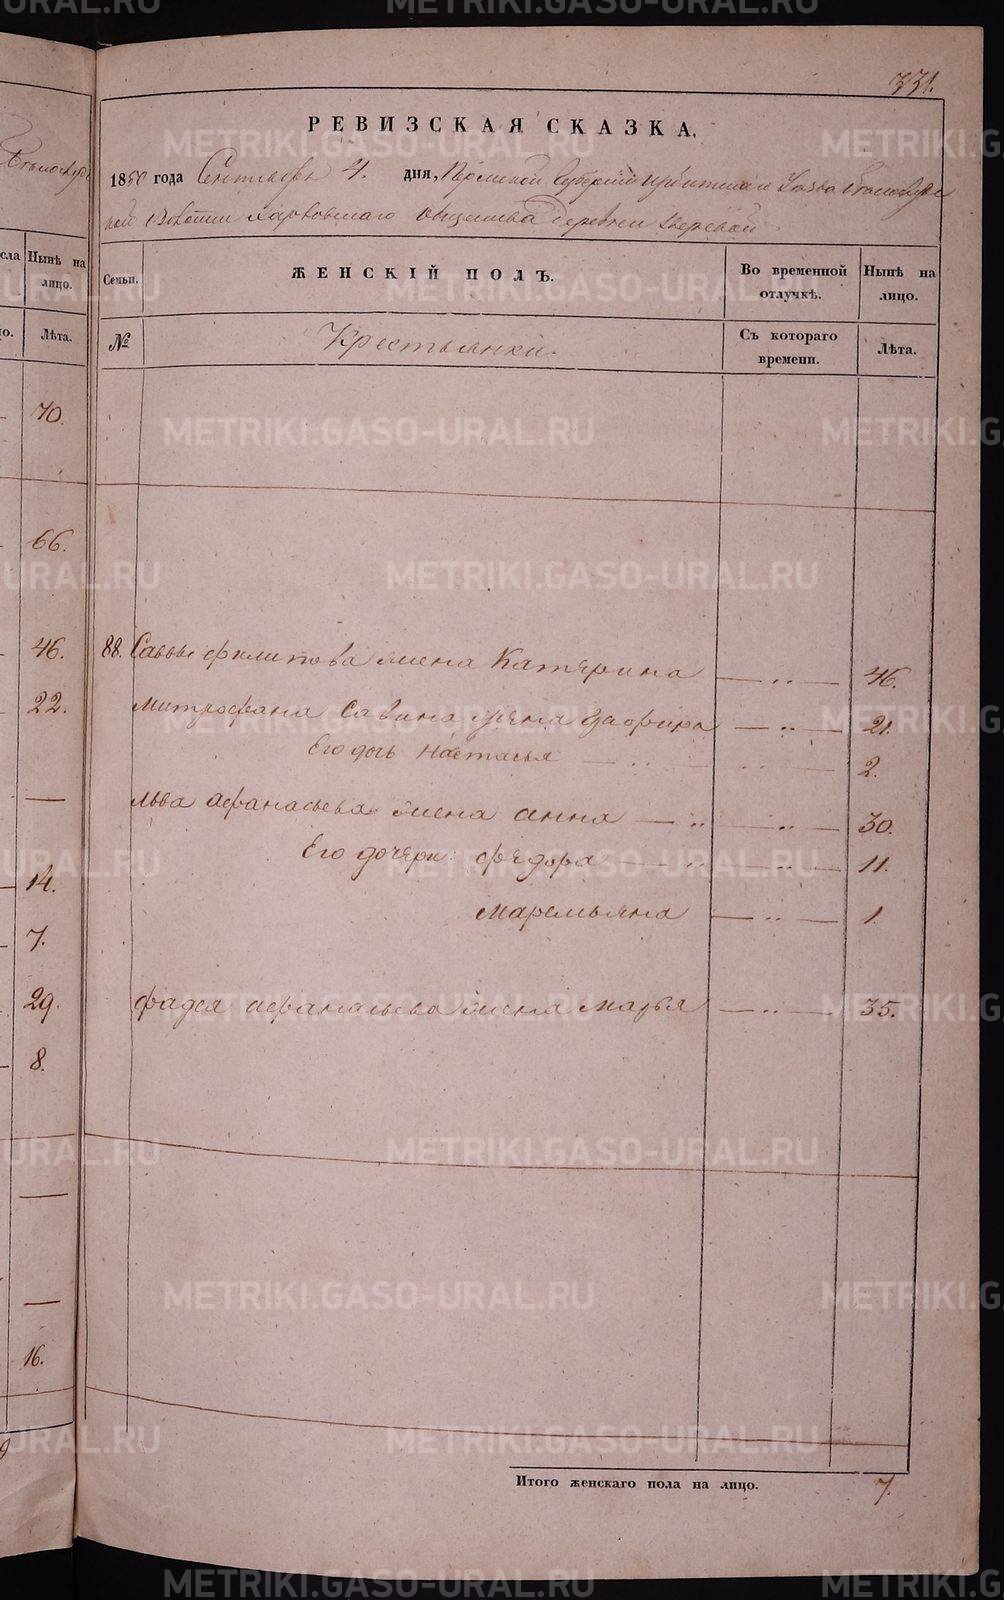 331.
РЕВИЗСКАЯ СКАЗКА.
1850 года Сентября 4. дня, Пермской Губернии Ирбитскаго уезда
Волости Харловскаго общества деревни
Семьи. ЖЕНСКІЙ ПОЛЪ. Во временной отлучкѣ. Нынѣ на лицо.
№ Крестьянки. Съ котораго времени. Лѣта.
88. Саввы Филипова жена Катерина — „ — 46.
Митрофана Савина жена — „ — 21.
Его дочь Настасья — „ — „ — 2.
Льва Афанасьева жена Анна — „ — „ — 30.
Его дочери: Федора — „ — „ — 11.
Маремьяна — „ — 1.
Фадея Афанасьева жена Марья — „ — 35.
Итого женскаго пола на лицо. 7.
сла Нынѣ на лицо.
Лѣта.
70.
66.
46.
22.
—
14.
7.
29.
8.
—
—
16.
METRIKI.GASO-URAL.RU